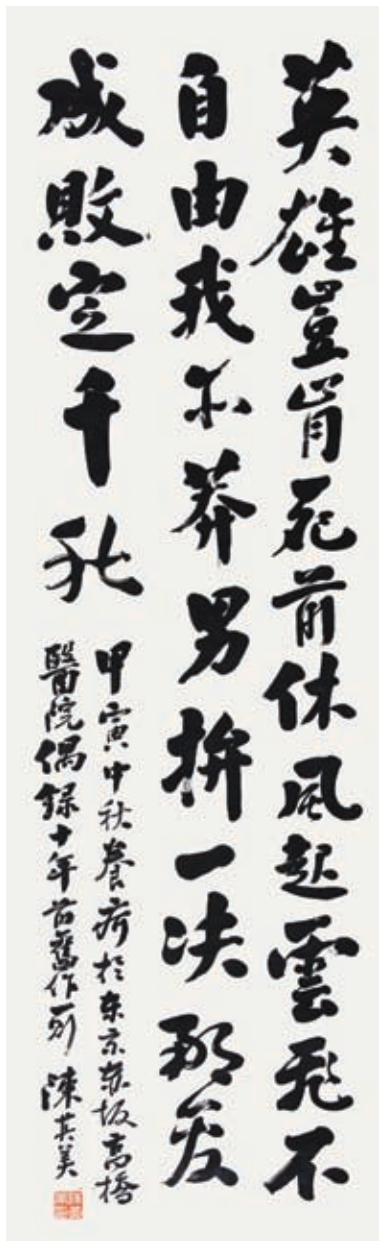 英雄豈肯死前休風起雲飛不
自由我本莽男拚一决那
成敗定千秋
甲寅中秋養疴於东京赤坂高橋
醫院偶録十年前舊作一則 陳其美